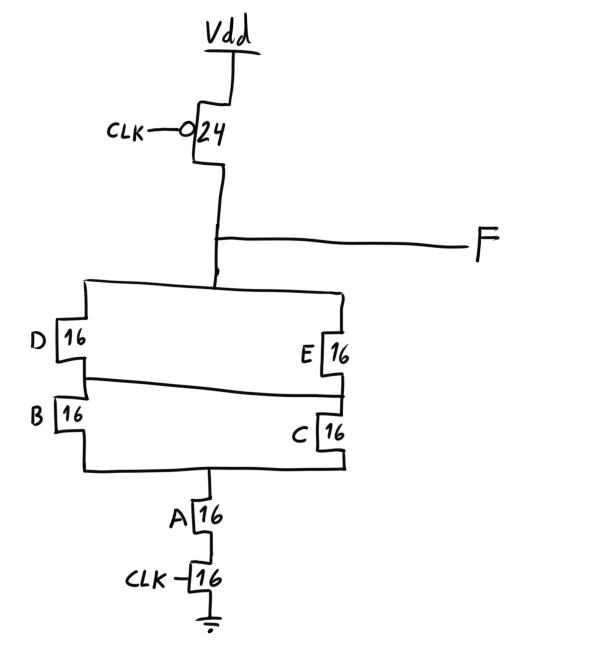 Vdd
CLK 24
F
D 16
E 16
B 16
C 16
A 16
CLK 16